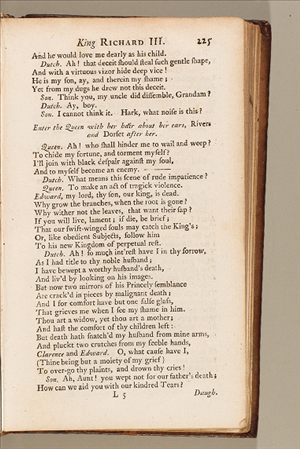 King RICHARD III. 225
And he would love me dearly as his child.
Dutch. Ah! that deceit should steal such gentle shape,
And with a virtuous vizor hide deep vice!
He is my son, ay, and therein my shame;
Yet from my dugs he drew not this deceit.
Son. Think you, my uncle did dissemble, Grandam?
Dutch. Ay, boy.
Son. I cannot think it. Hark, what noise is this?
Enter the Queen with her hair about her ears, Rivers
and Dorset after her.
Queen. Ah! who shall hinder me to wail and weep?
To chide my fortune, and torment myself?
I'll join with black despair against my soul,
And to myself become an enemy. —
Dutch. What means this scene of rude impatience?
Queen. To make an act of tragick violence.
Edward, my lord, thy son, our king, is dead.
Why grow the branches, when the root is gone?
Why wither not the leaves, that want their sap?
If you will live, lament; if die, be brief;
That our swift-winged souls may catch the King's;
Or, like obedient Subjects, follow him
To his new Kingdom of perpetual rest.
Dutch. Ah! so much int'rest have I in thy sorrow,
As I had title to thy noble husband;
I have bewept a worthy husband's death,
And liv'd by looking on his images.
But now two mirrors of his Princely semblance
Are crack'd in pieces by malignant death;
And I for comfort have but one false glass,
That grieves me when I see my shame in him.
Thou art a widow, yet thou art a mother;
And hast the comfort of thy children left:
But death hath snatch'd my husband from mine arms,
And pluckt two crutches from my feeble hands,
Clarence and Edward. O, what cause have I,
(Thine being but a moiety of my grief)
To over-go thy plaints, and drown thy cries!
Son. Ah, Aunt! you wept not for our father's death;
How can we aid you with our kindred Tears?
L 5 Daugh.